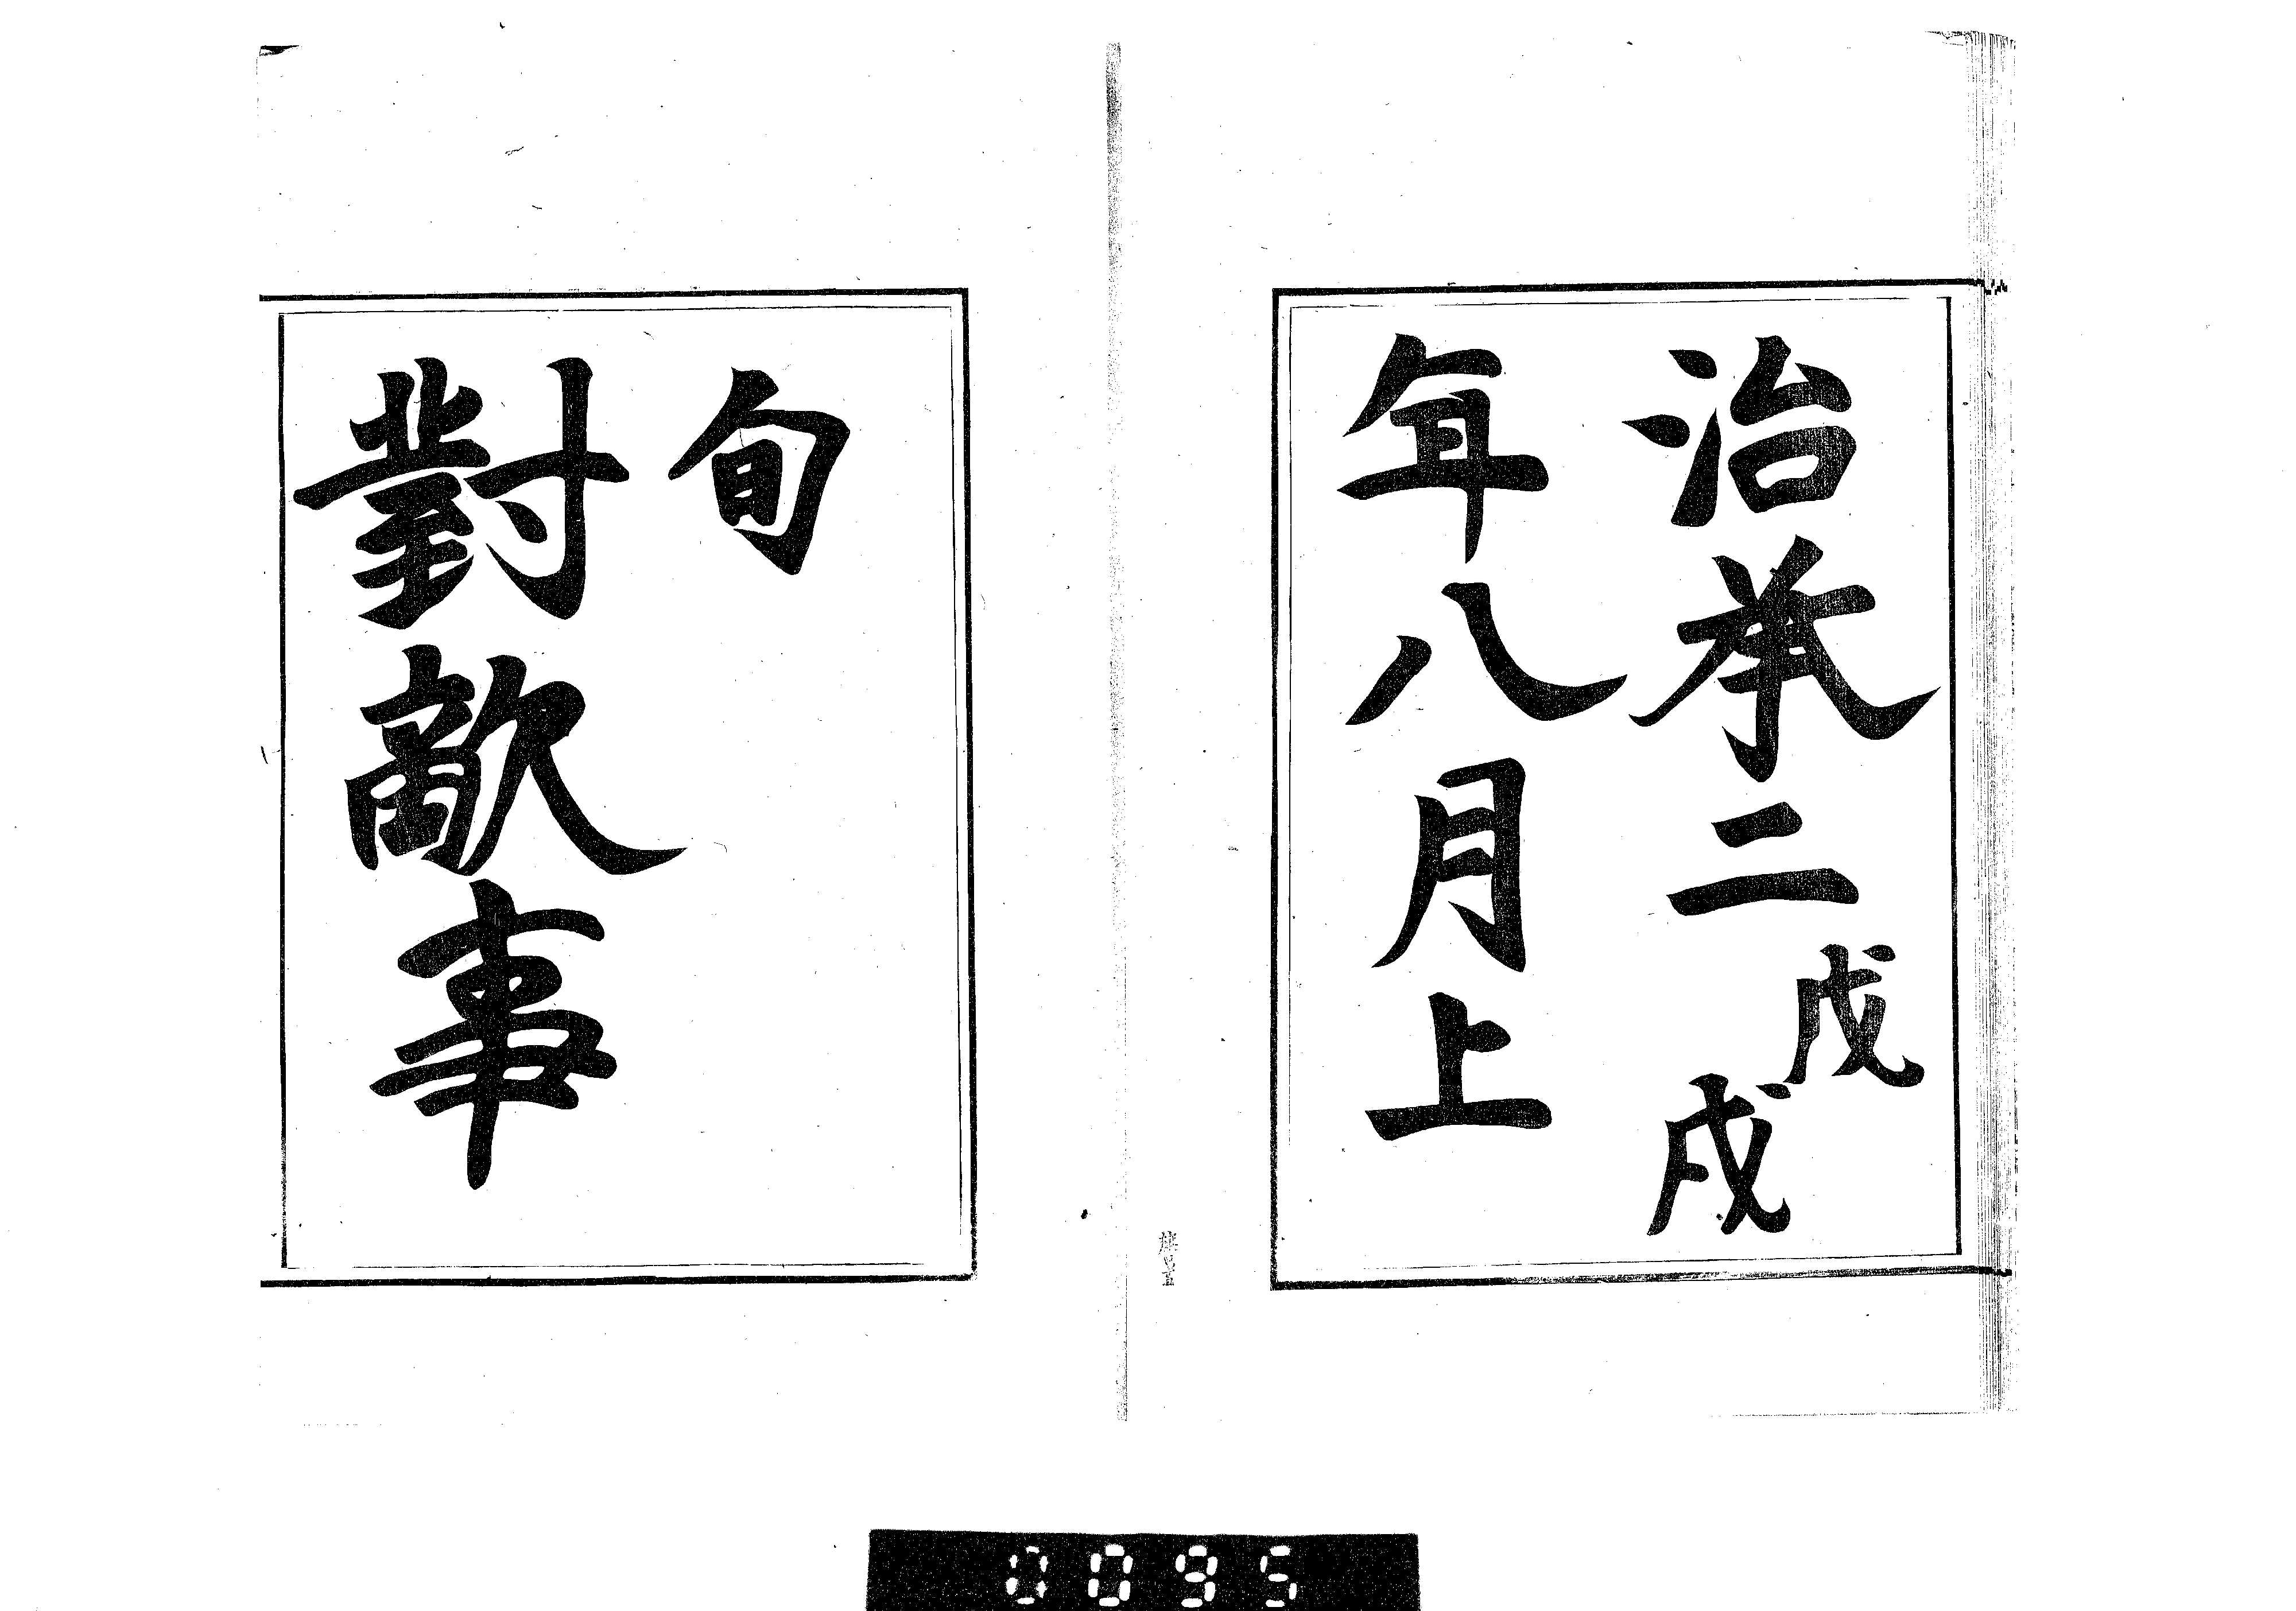 治承二戊戌
年八月上
旬
對敵事
0095